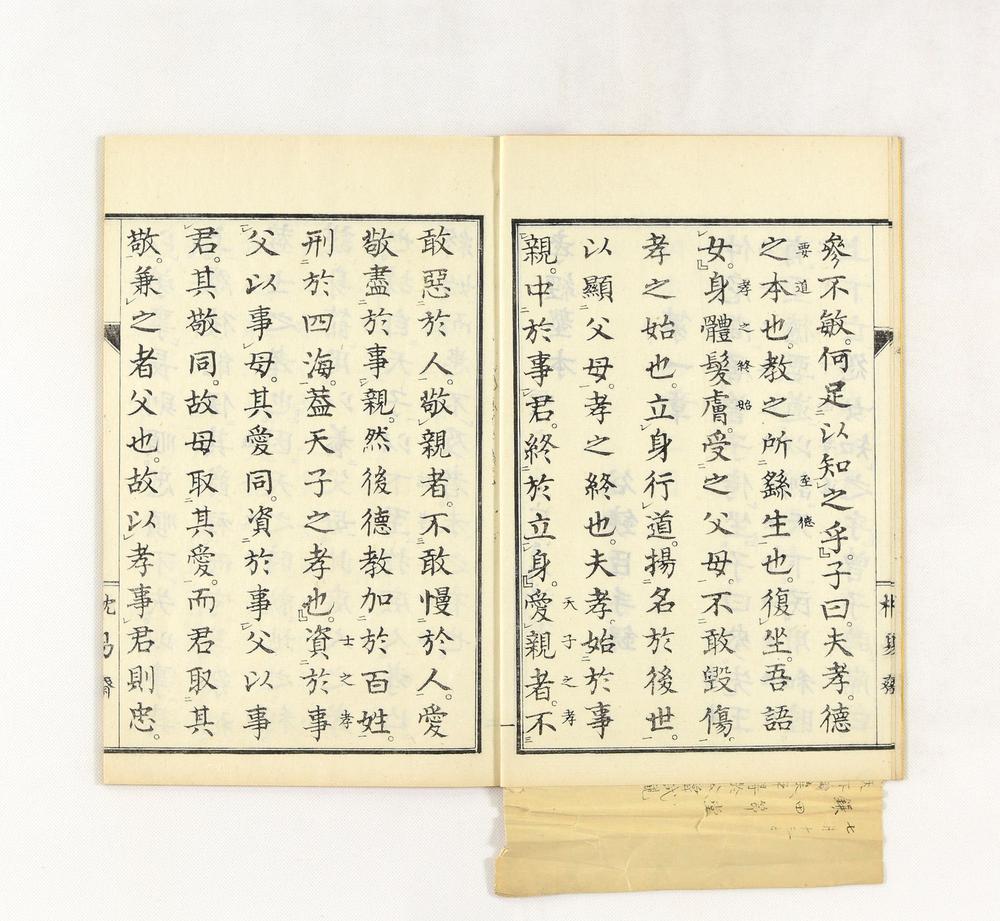 參不敏。何足以知之乎。子曰。夫孝。德
之本也。教之所繇生也。復坐。吾語
要道 至德
女。身體髮膚。受之父母。不敢毀傷。
孝之終始
孝之始也。立身行道。揚名於後世。
以顯父母。孝之終也。夫孝。始於事
親。中於事君。終於立身。愛親者。不
天子之孝
一
敢惡於人。敬親者。不敢慢於人。愛
敬盡於事親。然後德教加於百姓。
刑於四海。葢天子之孝也。資於事
士之孝
父以事母。其愛同。資於事父以事
君。其敬同。故母取其愛。而君取其
敬。兼之者父也。故以孝事君則忠。